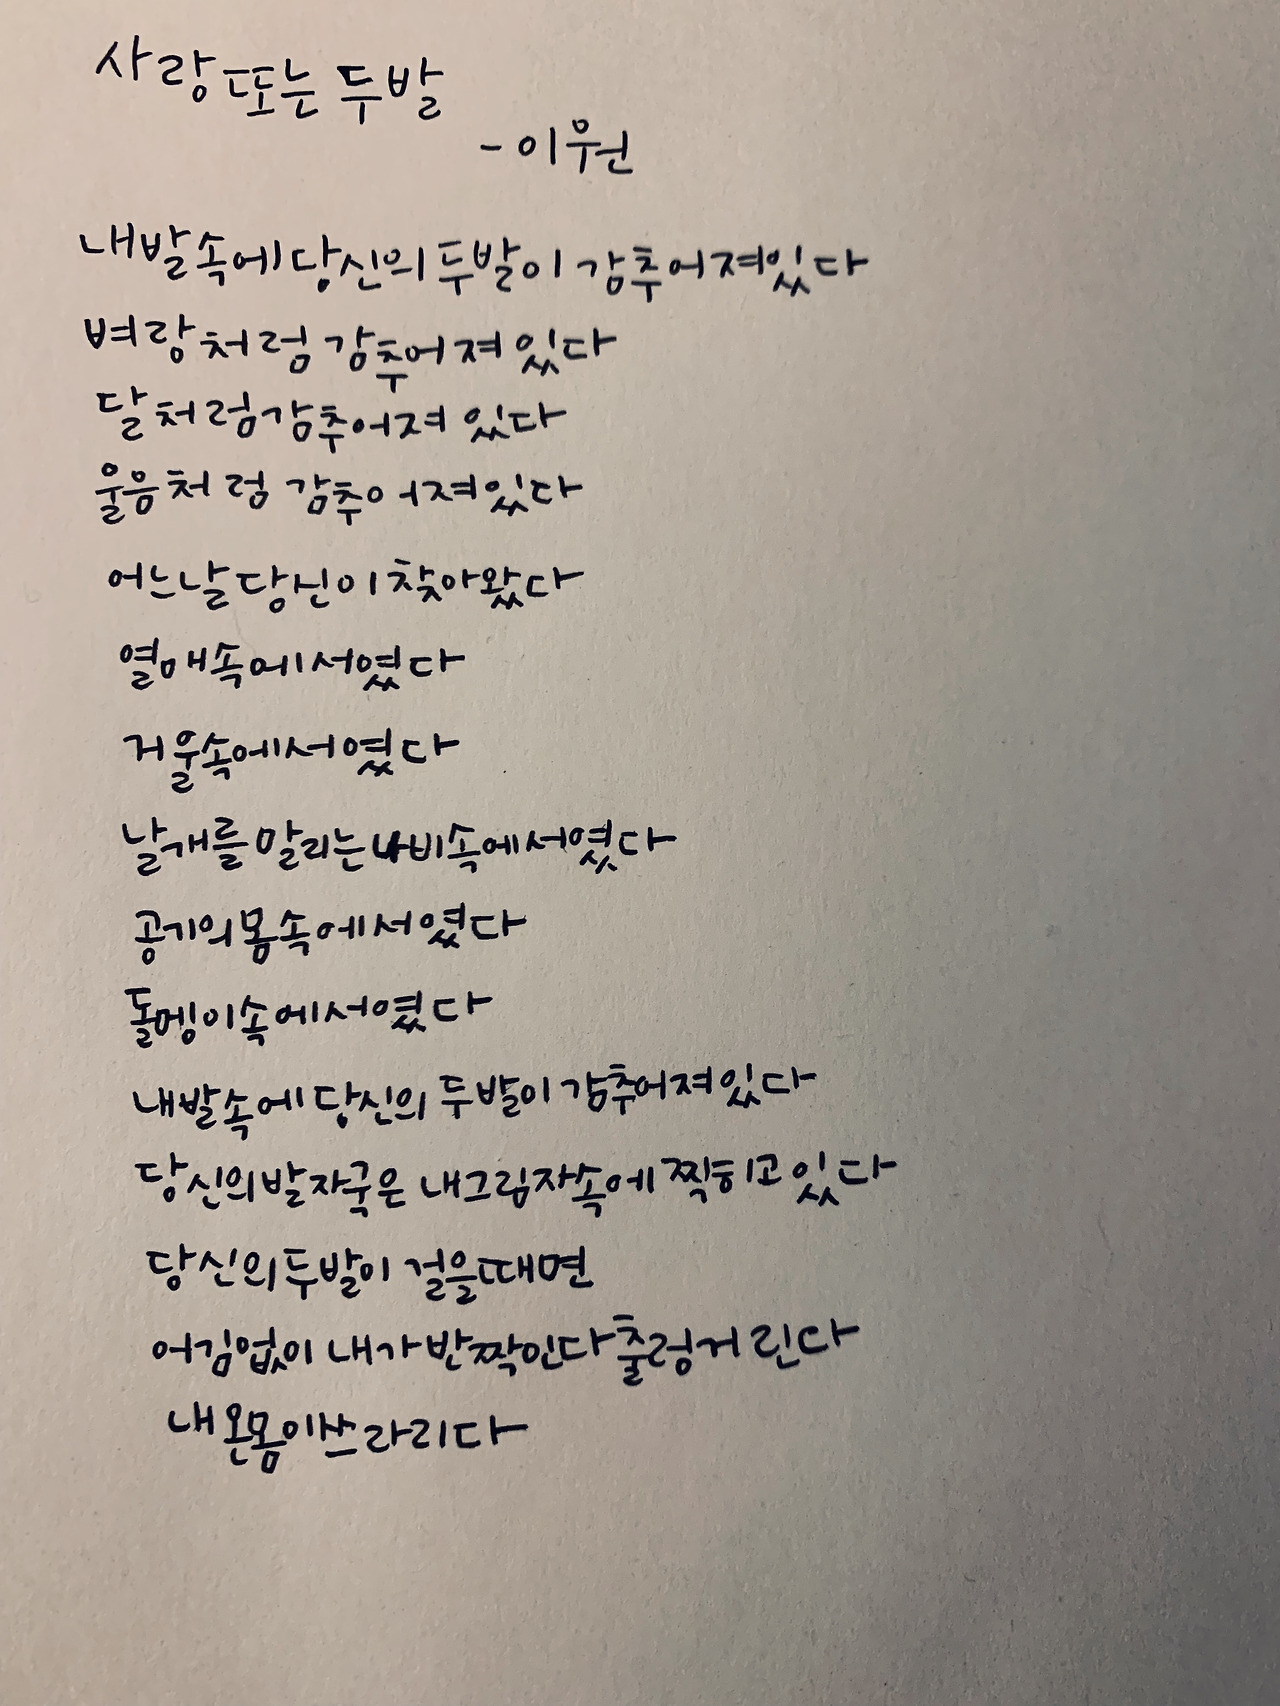 사랑 또는 두발
- 이원
내 발 속에 당신의 두 발이 감추어져 있다
벼랑처럼 감추어져 있다
달처럼 감추어져 있다
울음처럼 감추어져 있다
어느 날 당신이 찾아왔다
열매 속에서였다
거울 속에서였다
날개를 말리는 나비 속에서였다
공기의 몸 속에서였다
돌멩이 속에서였다
내 발 속에 당신의 두 발이 감추어져 있다
당신의 발자국은 내 그림자 속에 찍히고 있다
당신의 두 발이 걸을 때면
어김없이 내가 반짝인다 출렁거린다
내 온몸이 쓰라리다